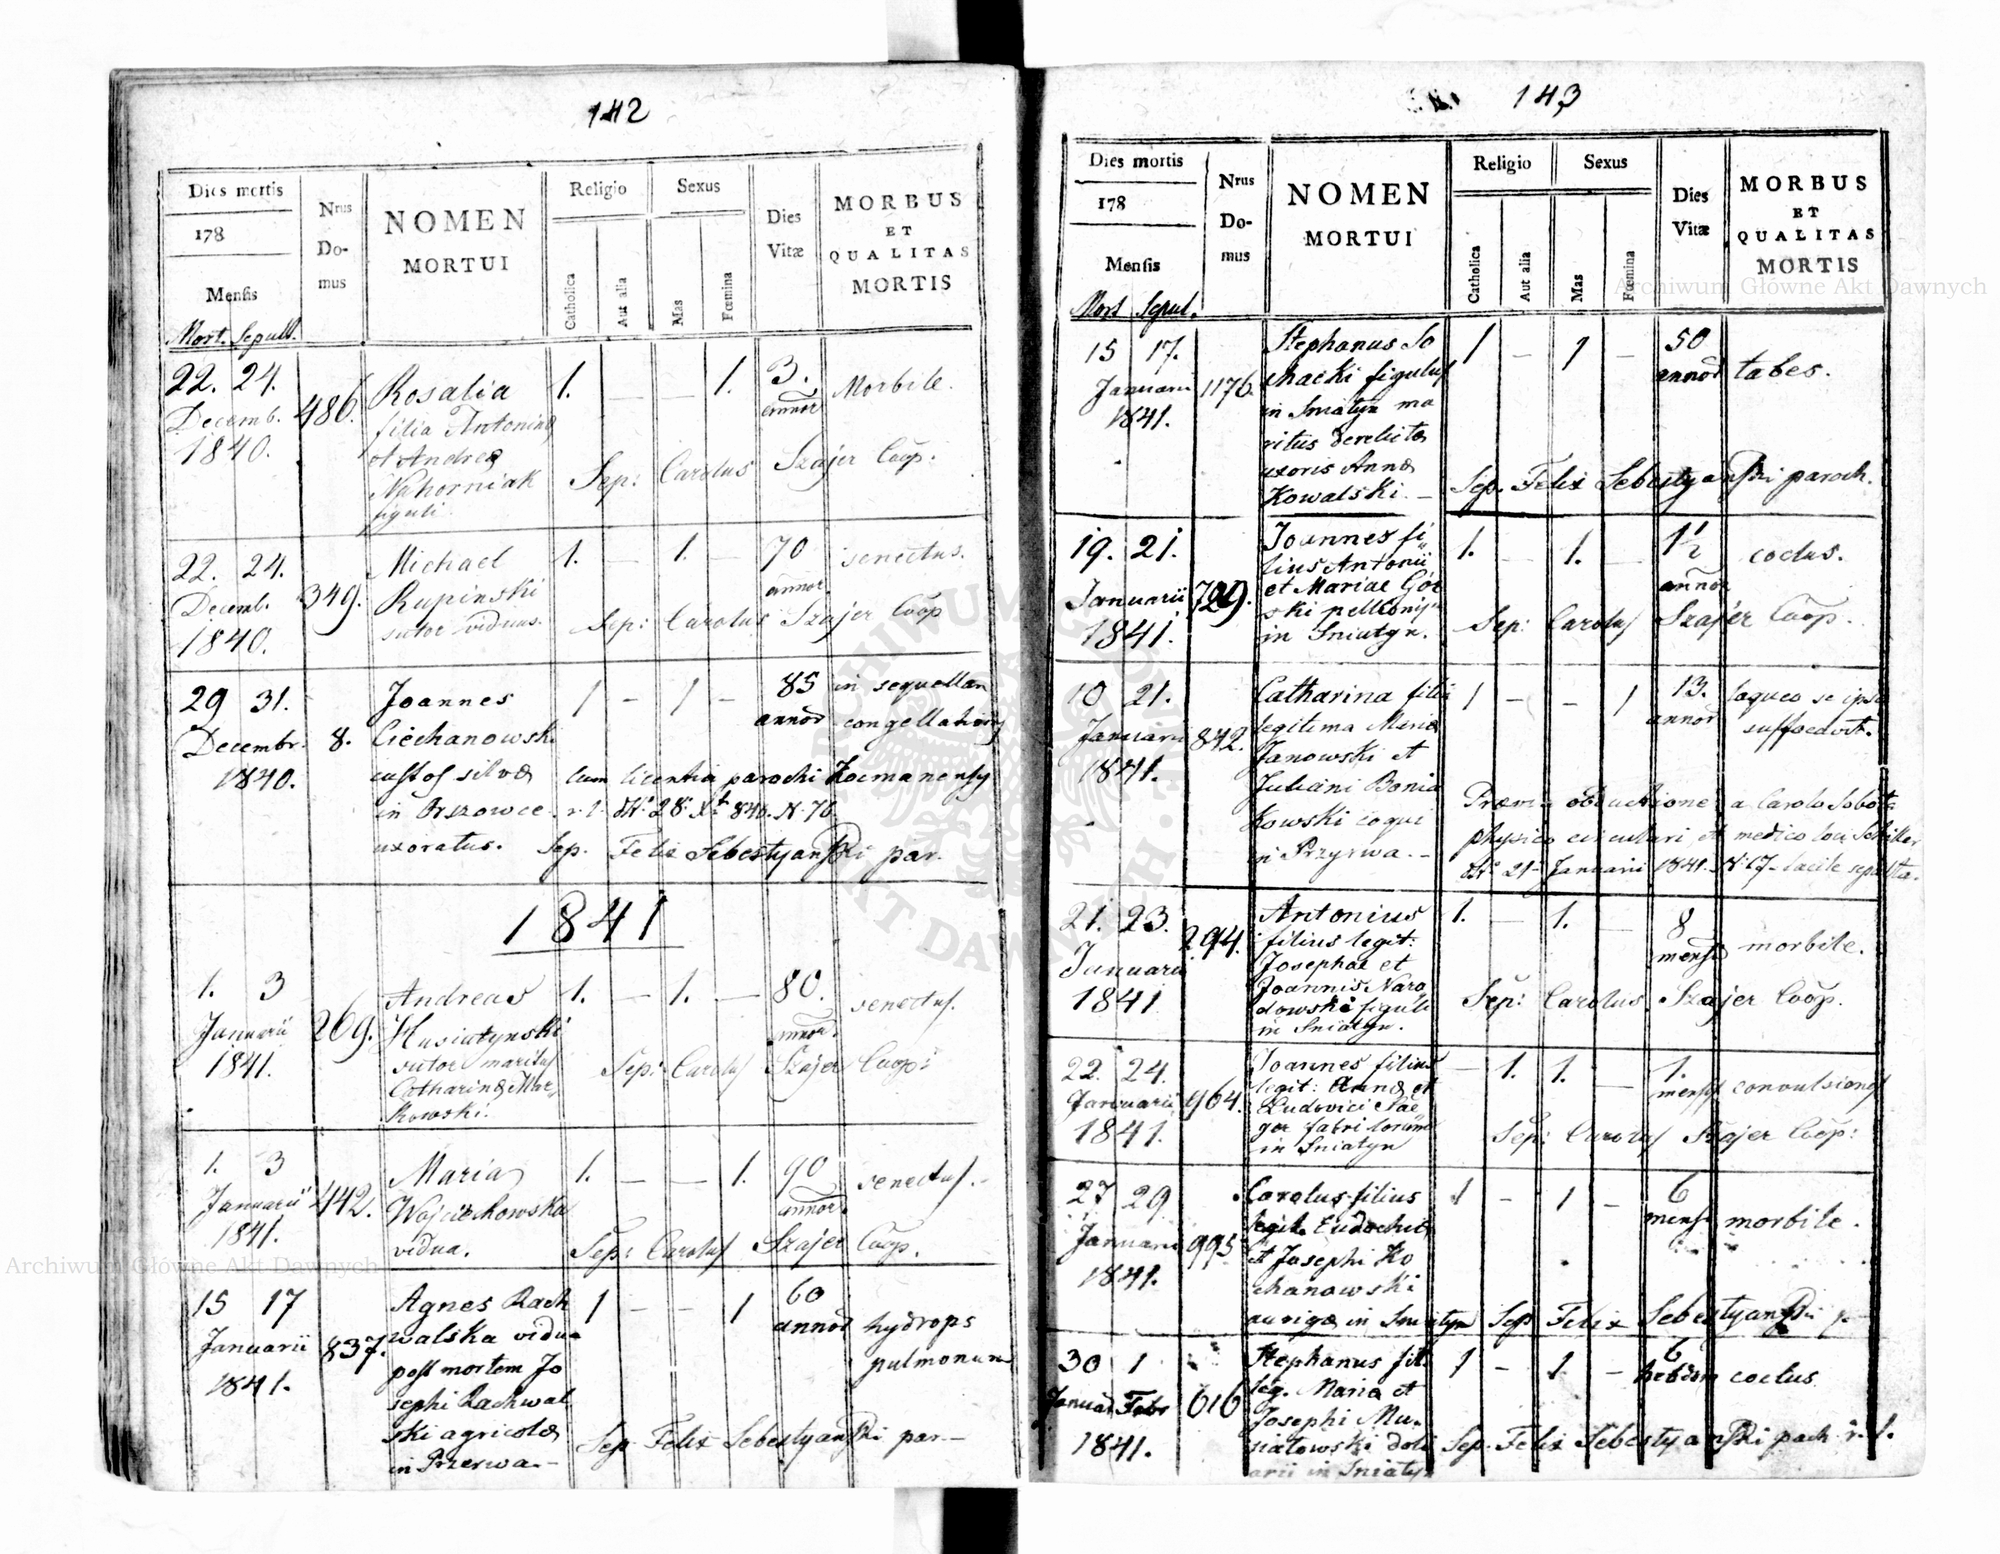 142
Dies mortis
178
Mensis
Mort. Sepult.
Nrus
Do-
mus
NOMEN
MORTUI
Religio
Catholica
Aut alia
Sexus
Mas
Fœmina
Dies
Vitæ
MORBUS
ET
QUALITAS
MORTIS
22. 24.
Decemb.
1840.
486.
Rosalia
filia Antonina
et Andrea
Nahorniak
figuli
1. — — 1.
3.
annor
Morbile.
Sep: Carolus Szajer Coop.
22. 24.
Decemb.
1840.
349.
Michael
Rupinski
sutor viduus.
1. — 1. —
70
annor.
senectus.
Sep: Carolus Szajer Coop
29 31.
Decembr.
1840.
8.
Joannes
Ciechanowski
custos silvæ
in
uxoratus.
1 — 1 —
85
annor
in sequellam
congellationis
cum licentia parochi Kocmanensis
r. l. 28 840. N. 76
Sep. Felix Sebestyański par.
1841
1. 3
Januarii
1841.
269.
Andreas
Husiatynski
sutor maritus
Catharinæ Mar
kowski.
1. — 1. —
80.
annor.
senectus.
Sep: Carolus Szajer Coop:
1. 3
Januarii
1841.
442.
Maria
Wojciechowska
vidua.
1. — — 1.
90
annor.
senectus. -
Sep: Carolus Szajer Coop.
15 17
Januarii
1841.
837.
Agnes Rach
walska vidua
post mortem Jo
sephi Rachwal
ski agricolæ
in Przerwa. —
1 — — 1
60
annor
hydrops
pulmonum
Sep. Felix Sebestyański par —
143
Dies mortis
178
Mensis
Mort Sepul.
Nrus
Do-
mus
NOMEN
MORTUI
Religio
Catholica
Aut alia
Sexus
Mas
Fœmina
Dies
Vitæ
MORBUS
ET
QUALITAS
MORTIS
15 17.
Januarii
1841.
1176.
Stephanus So
chacki figulus
in Sniatyn ma
ritus derelictæ
uxoris Annæ
Kowalski. —
1 — 1 —
50
annor
tabes.
Sep. Felix Sebestyański paroch.
19. 21.
Januarii
1841.
729.
Joannes fi
lius Antonii
et Mariae Gór
ski pellionis
in Sniatyn.
1. — 1. —
1½
annor
coclus.
Sep: Carolus Szajer Coop.
10 21.
Januarii
1841.
842.
Catharina filia
legitima Mariæ
Janowski et
Juliani Bonia
kowski coqui
in Przyrwa. —
1 — — 1
13.
annor
laqueo se ipsa
suffocavit.
Præm. obductione a Carolo Sobota
physico circulari, et medico loci Schiller
21 Januarii 1841. N. 17 - tacite sepulta.
21. 23.
Januarii
1841
294.
Antonius
filius legit:
Josephae et
Joannis Naro
dowski figuli
in Sniatyn.
1. — 1. —
8
mens
morbile.
Sep: Carolus Szajer Coop.
22. 24.
Januarii
1841.
964.
Joannes filius
legit: Annæ et
Ludovici Jae
ger fabri
in Sniatyn
— 1. 1. —
1.
mensis
convulsiones
Sep: Carolus Szajer Coop:
27 29
Januarii
1841.
995
Carolus filius
legit. Eudochiæ
et Josephi Ko
chanowski
aurigæ in Sniatyn Sep Felix Sebestyański p
1 — 1 —
6
mens
morbile.
30 1
Januar Febr
1841.
616
Stephanus fil.
leg. Maria et
Josephi Mu
siatowski doli
arii in Sniatyn
1 — 1 —
6
hebdom
coclus
Sep. Felix Sebestyański par r. l.
Archiwum Główne Akt Dawnych
Archiwum Główne Akt Dawnych
ARCHIWUM GŁÓWNE AKT DAWNYCH